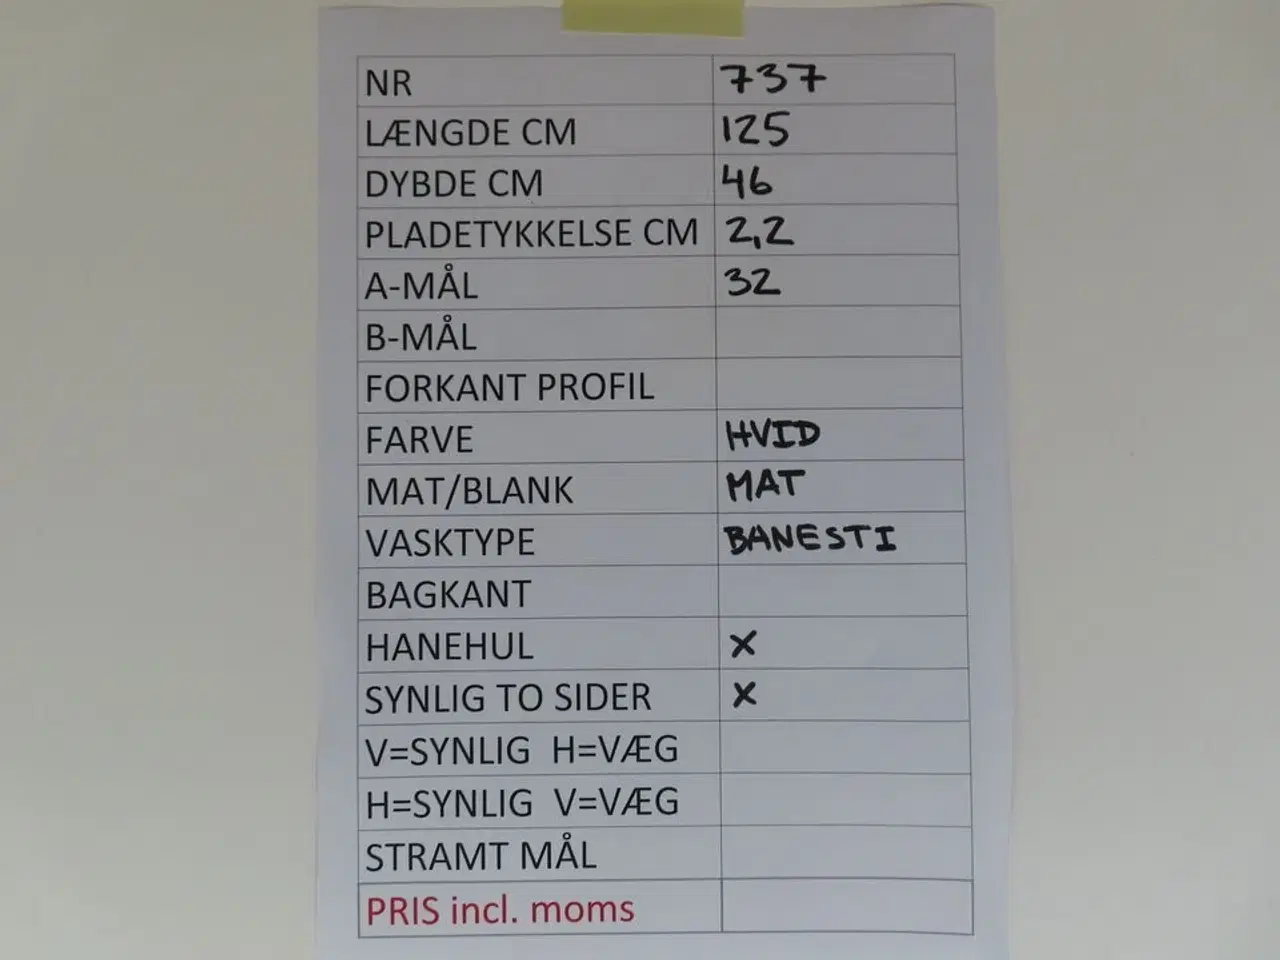 NR 737
LÆNGDE CM 125
DYBDE CM 46
PLADETYKKELSE CM 2,2
A-MÅL 32
B-MÅL
FORKANT PROFIL
FARVE HVID
MAT/BLANK MAT
VASKTYPE BANESTI
BAGKANT
HANEHUL X
SYNLIG TO SIDER X
V=SYNLIG H=VÆG
H=SYNLIG V=VÆG
STRAMT MÅL
PRIS incl. moms